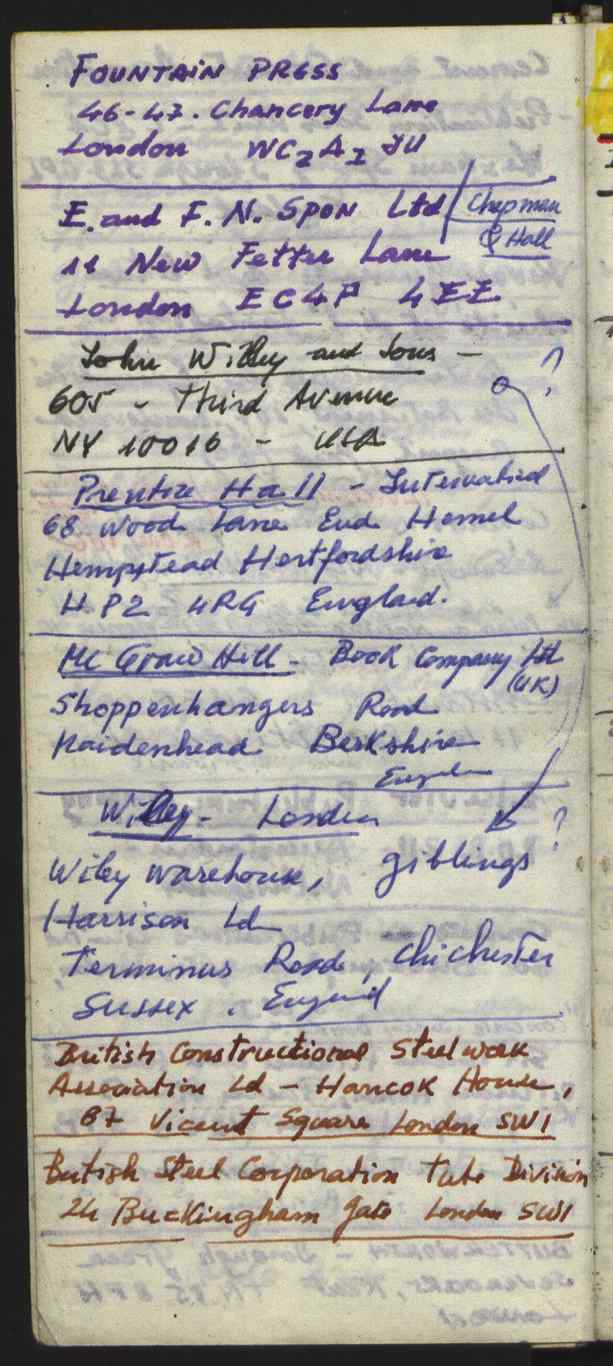 FOUNTAIN PRESS
46-47. Chancery Lane
London WC2A1 JU
E. and F. N. SPON Ltd Chapman
& Hall
11 New Fetter Lane
London EC4P 4EE
John Willey and Sons - ?
605 - Third Avenue
NY 10016 - USA
Prentice Hall - International
68 Wood Lane End Hemel
Hempstead Hertfordshire
HP2 4RG England.
Mc Graw Hill - Book Company Ltd
(UK)
Shoppenhangers Road
Maidenhead Berkshire
England
Willey - London ?
Wiley warehouse, giblings
Harrison Ld
Terminus Road, Chichester
Sussex, England
British Constructional Steelwork
Association Ld - Hancok House,
87 Vicent Square London SW1
British Steel Corporation Tube Division
24 Buckingham gate London SW1